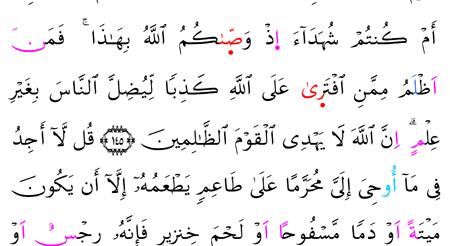 أَمْ كُنتُمْ شُهَدَآءَ إِذْ وَصَّىٰكُمُ ٱللَّهُ بِهَـٰذَا ۚ فَمَنَ
اَظْلَمُ مِمَّنِ ٱفْتَرَىٰ عَلَى ٱللَّهِ كَذِبًا لِّيُضِلَّ ٱلنَّاسَ بِغَيْرِ
عِلْمٍ ۗ اِنَّ ٱللَّهَ لَا يَهْدِى ٱلْقَوْمَ ٱلظَّـٰلِمِينَ ۝١٤٥ قُل لَّآ أَجِدُ
فِى مَآ أُوحِىَ إِلَىَّ مُحَرَّمًا عَلَىٰ طَاعِمٍ يَطْعَمُهُۥٓ إِلَّآ أَن يَكُونَ
مَيْتَةً اَوْ دَمًا مَّسْفُوحًا اَوْ لَحْمَ خِنزِيرٍ فَإِنَّهُۥ رِجْسٌ اَوْ